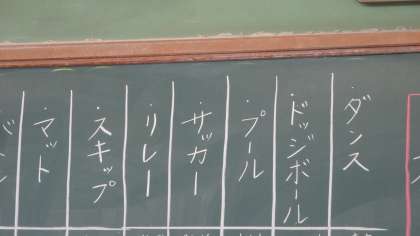 ・ダンス
・ドッジボール
・プール
・サッカー
・リレー
・スキップ
・マット